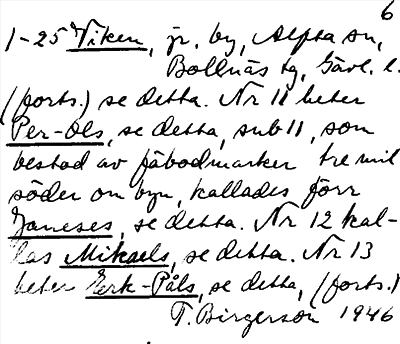 6
1-25 Viken, jr. by, Alfta sn,
Bollnäs tg, Gävl. l.
(forts.) se detta. Nr 11 heter
Per-Ols, se detta, sub 11, som
bestod av fäbodmarker tre mil
söder om byn, kallades förr
Janeses, se detta. Nr 12 kal-
las Mikaels, se detta. Nr 13
heter Erk-Påls, se detta, (forts.)
T. Birgerson 1946